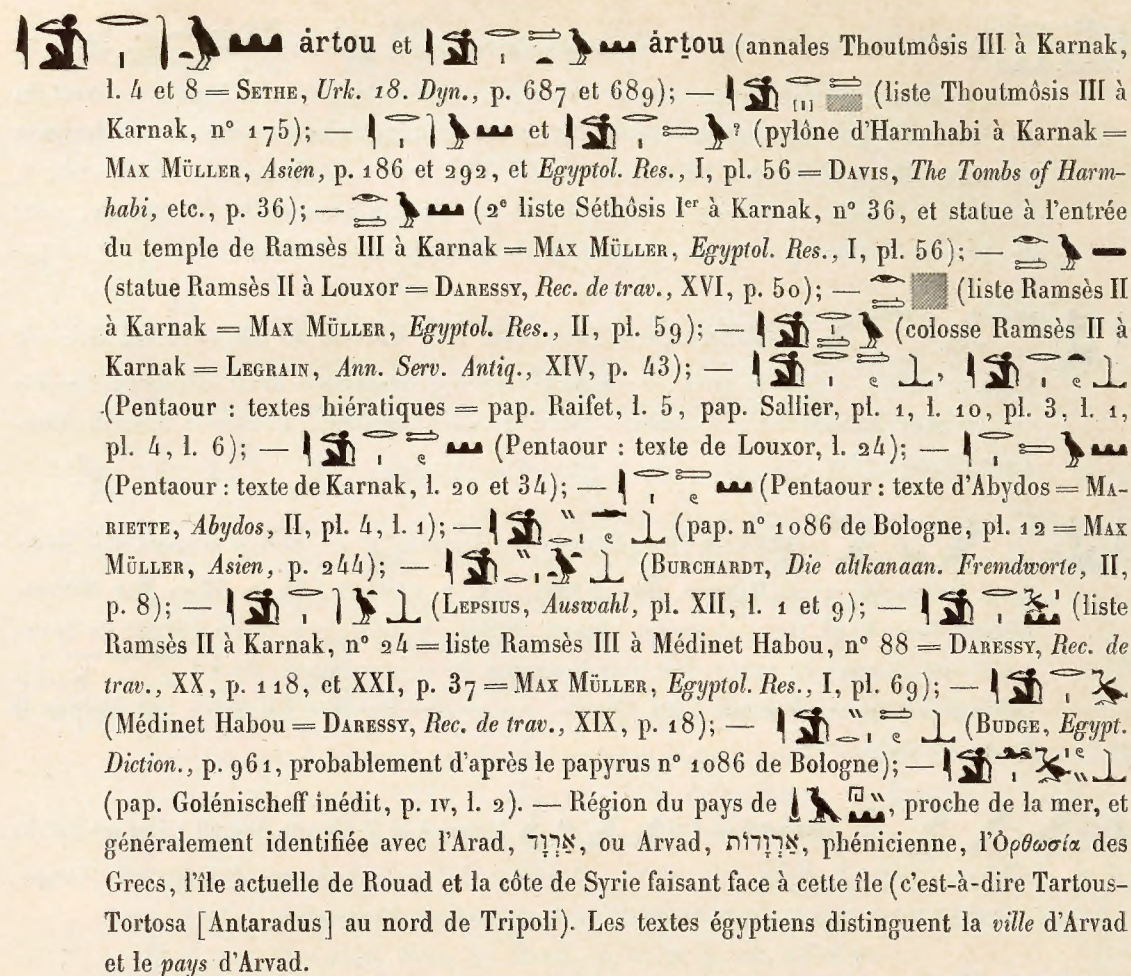 ȧrtou et ȧrṭou (annales Thoutmôsis III à Karnak,
l. 4 et 8 = SETHE, Urk. 18. Dyn., p. 687 et 689); — (liste Thoutmôsis III à
Karnak, n° 175); — et ? (pylône d'Harmhabi à Karnak =
MAX MÜLLER, Asien, p. 186 et 292, et Egyptol. Res., I, pl. 56 = DAVIS, The Tombs of Harm-
habi, etc., p. 36); — (2e liste Séthôsis Ier à Karnak, n° 36, et statue à l'entrée
du temple de Ramsès III à Karnak = MAX MÜLLER, Egyptol. Res., I, pl. 56); —
(statue Ramsès II à Louxor = DARESSY, Rec. de trav., XVI, p. 50); — (liste Ramsès II
à Karnak = MAX MÜLLER, Egyptol. Res., II, pl. 59); — (colosse Ramsès II à
Karnak = LEGRAIN, Ann. Serv. Antiq., XIV, p. 43); — ,
(Pentaour : textes hiératiques = pap. Raifet, l. 5, pap. Sallier, pl. 1, l. 10, pl. 3, l. 1,
pl. 4, l. 6); — (Pentaour : texte de Louxor, l. 24); —
(Pentaour : texte de Karnak, l. 20 et 34); — (Pentaour : texte d'Abydos = MA-
RIETTE, Abydos, II, pl. 4, l. 1); — (pap. n° 1086 de Bologne, pl. 12 = MAX
MÜLLER, Asien, p. 244); — (BURCHARDT, Die altkanaan. Fremdworte, II,
p. 8); — (LEPSIUS, Auswahl, pl. XII, l. 1 et 9); — (liste
Ramsès II à Karnak, n° 24 = liste Ramsès III à Médinet Habou, n° 88 = DARESSY, Rec. de
trav., XX, p. 118, et XXI, p. 37 = MAX MÜLLER, Egyptol. Res., I, pl. 69); —
(Médinet Habou = DARESSY, Rec. de trav., XIX, p. 18); — (BUDGE, Egypt.
Diction., p. 961, probablement d'après le papyrus n° 1086 de Bologne); —
(pap. Golénischeff inédit, p. IV, l. 2). — Région du pays de , proche de la mer, et
généralement identifiée avec l'Arad, אַרְוָד, ou Arvad, אַרְוָדוֹת, phénicienne, l'Ὀρθωσία des
Grecs, l'île actuelle de Rouad et la côte de Syrie faisant face à cette île (c'est-à-dire Tartous-
Tortosa [Antaradus] au nord de Tripoli). Les textes égyptiens distinguent la ville d'Arvad
et le pays d'Arvad.